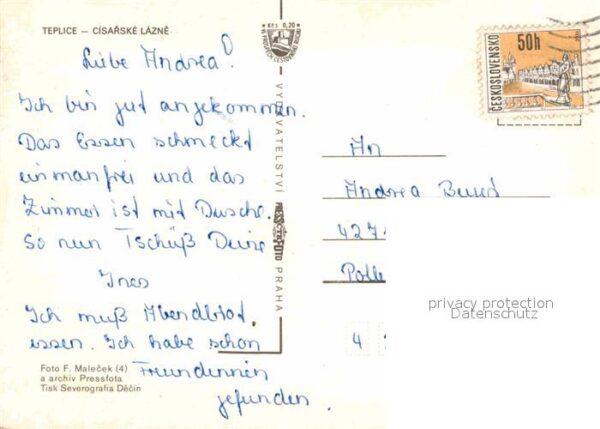 TEPLICE – CÍSAŘSKÉ LÁZNĚ
Kčs 0,20
Liebe Andrea!
Ich bin gut angekommen.
Das Essen schmeckt
einmanfrei und das
Zimmer ist mit Dusche.
So nun Tschüß Deine
Ines
Ich muß Abendbrot
essen. Ich habe schon
Freundennen
gefunden.
Foto F. Maleček (4)
a archiv Pressfota
Tisk Severografia Děčín
VYDAVATELSTVÍ PRESSFOTO PRAHA
50h
ČESKOSLOVENSKO
An
Andrea
427
4
privacy protection
Datenschutz